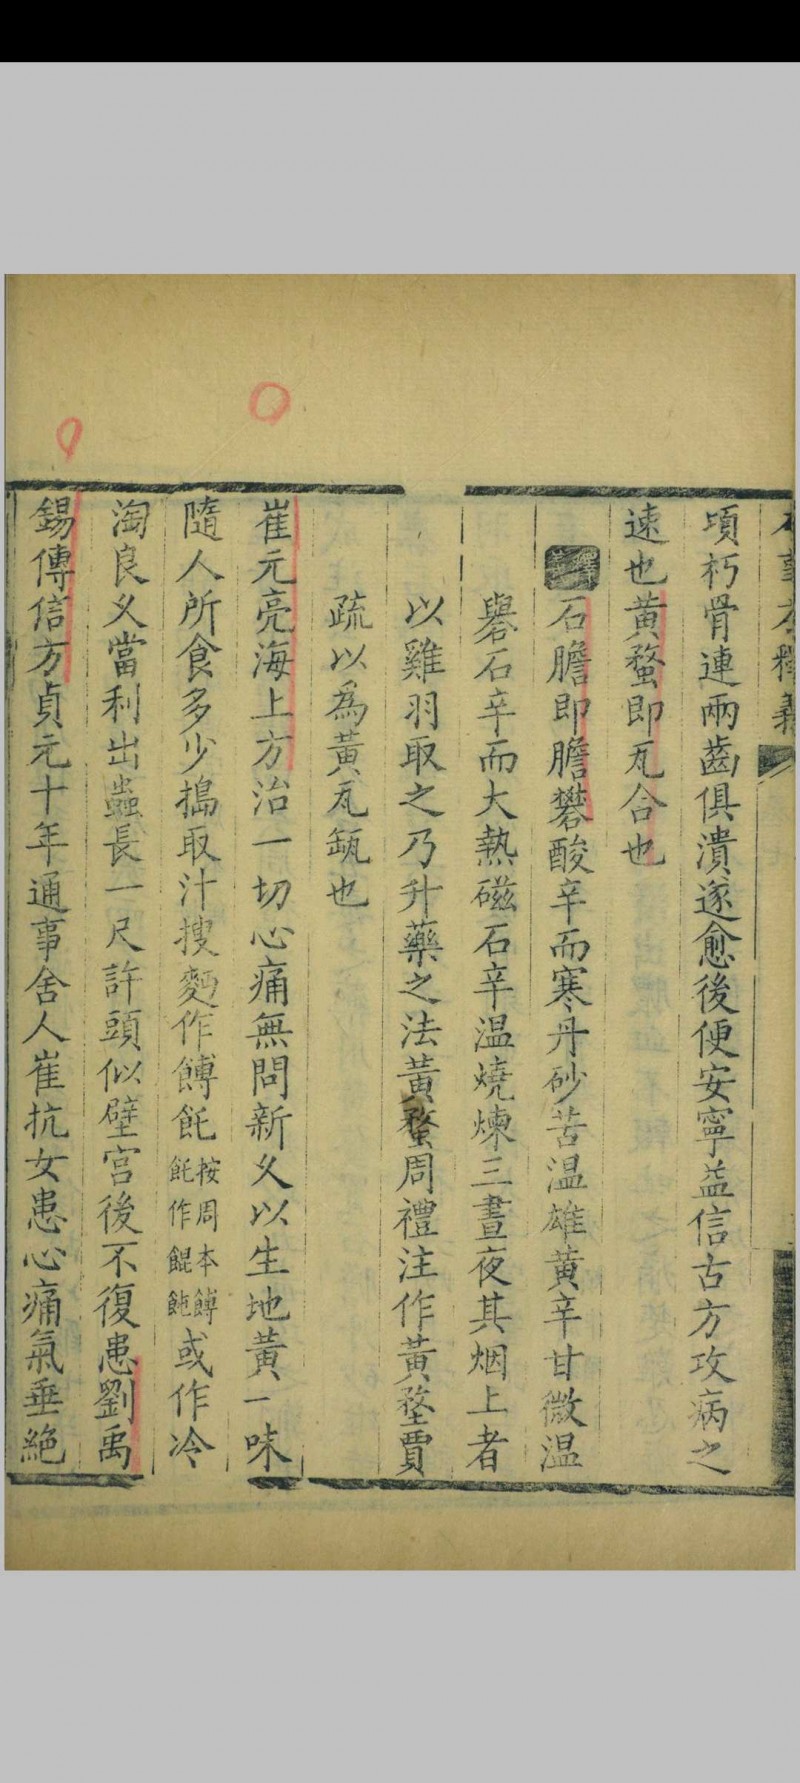 本事方釋義
頃朽骨連兩齒俱潰遂愈後便安寧益信古方攻病之
速也黃螯即瓦合也
釋義石膽即膽礬酸辛而寒丹砂苦温雄黃辛甘微温
礜石辛而大熱磁石辛温燒煉三晝夜其烟上者
以雞羽取之乃升藥之法黃螯周禮注作黃堥賈
疏以為黃瓦缻也
崔元亮海上方治一切心痛無問新久以生地黃一味
隨人所食多少搗取汁搜麪作餺飥按周本餺飥作餛飩或作冷
淘良久當利出蟲長一尺許頭似壁宫後不復患劉禹
錫傳信方貞元十年通事舍人崔抗女患心痛氣垂絶